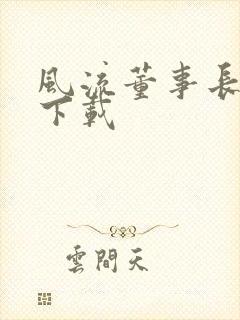 風流董事長
下載
雲間天